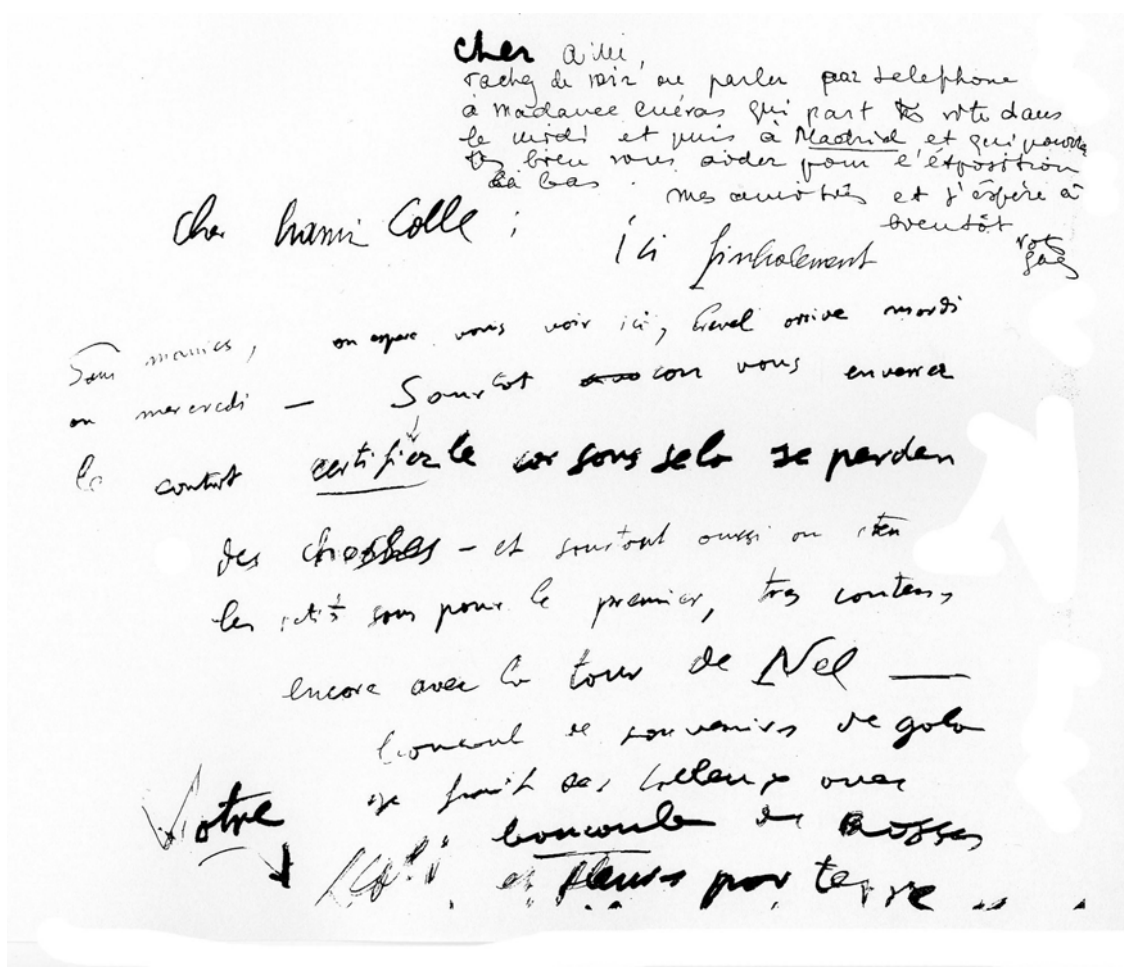 cher ami,
tachez de voir ou parler par telephone
à madame cuévas qui part vite dans
le midi et puis à Madrid et qui pourra
bien vous aider pour l'éxposition
là bas. mes amitiés et j'éspère à
bientôt
votre
gala
Cher hami Colle :
ici finhalement
on espere vous voir ici, Crevel arive mardi
ou mercredi — Sourtot vous enverrez
le contrat certifiez le car sans sela se perden
des chosses - et sourtout aussi on
les pour le premier, tres contens
encore avec la tour de Nel —
boucoul de souvenirs de gala
je frait des avec
boucoulo de rosses
et fleurs par terre ...
Votre
Dali